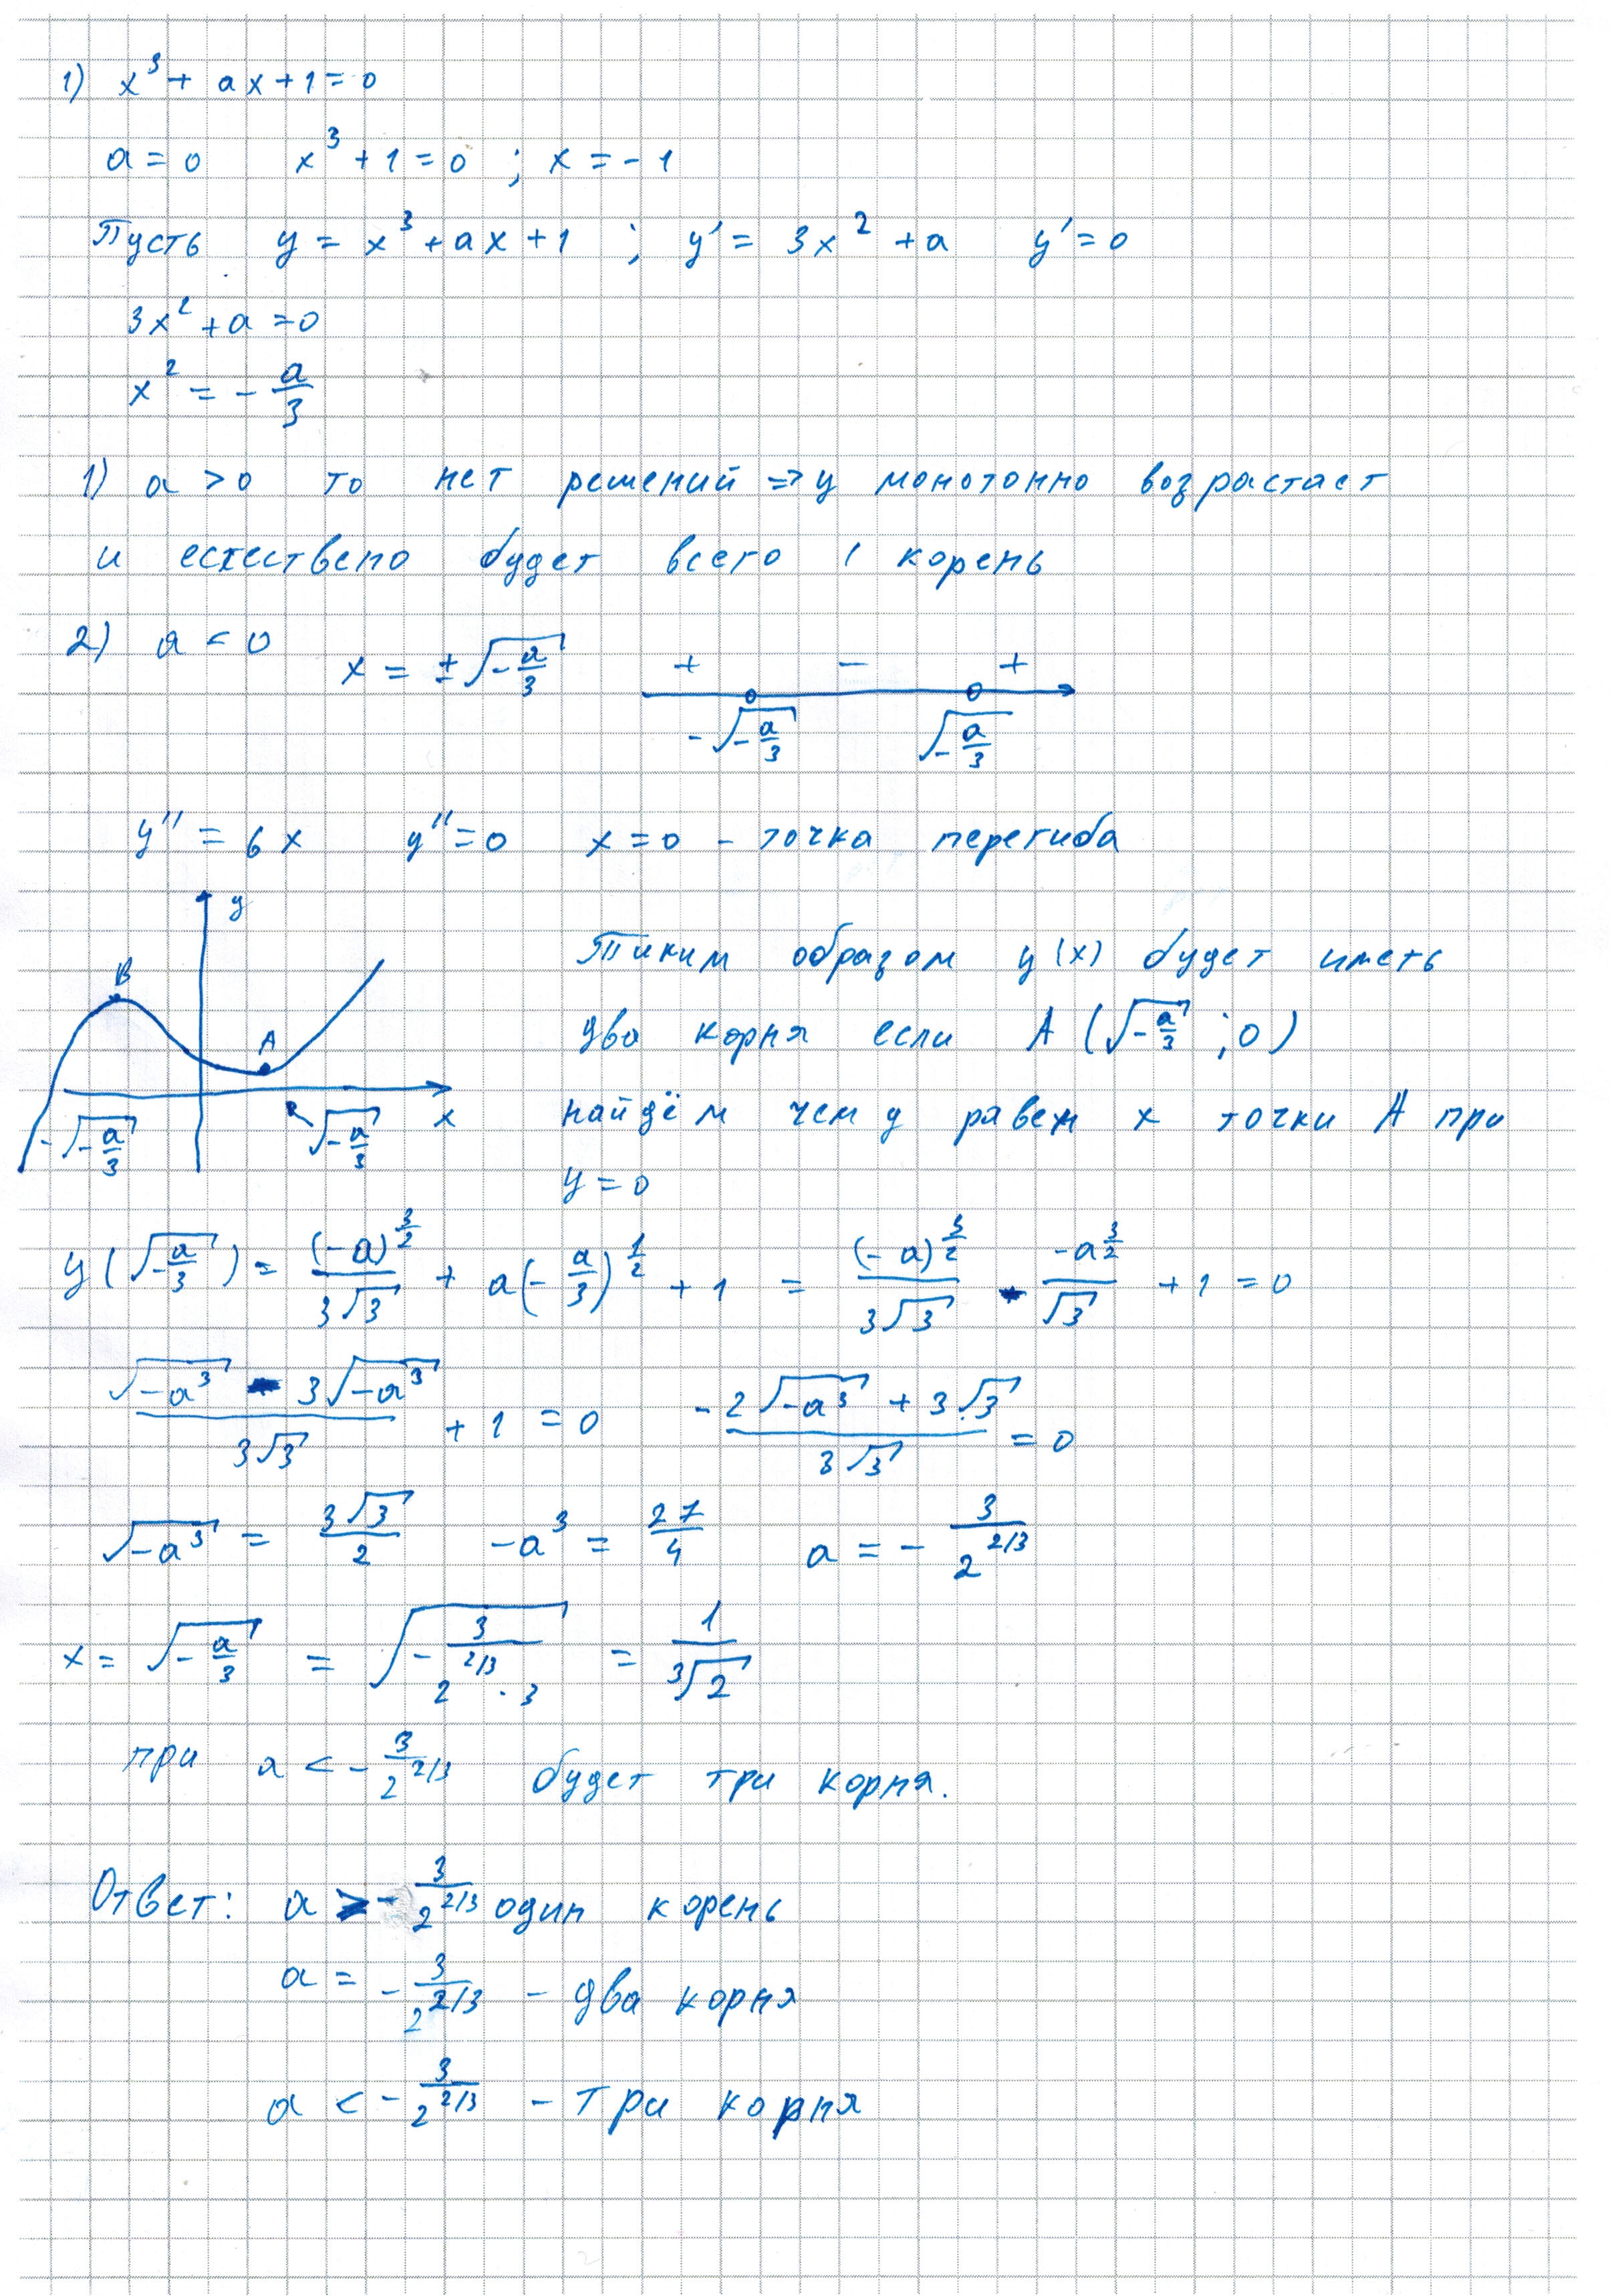 1) x³ + ax + 1 = 0
a = 0 x³ + 1 = 0 ; x = -1
Пусть y = x³ + ax + 1 ; y' = 3x² + a y' = 0
3x² + a = 0
x² = - a/3
1) a > 0 то нет решений => y монотонно возрастает
и естествено будет всего 1 корень
2) a < 0 x = ±√(-a/3) + - +
-√(-a/3) √(-a/3)
y'' = 6x y'' = 0 x = 0 - точка перегиба
y
B
A
x
-√(-a/3) √(-a/3)
Таким образом y(x) будет иметь
два корня если A (√(-a/3) ; 0)
найдём чему равен x точки A при
y = 0
y(√(-a/3)) = (-a)^(3/2)/(3√3) + a(-a/3)^(1/2) + 1 = (-a)^(3/2)/(3√3) - -a^(3/2)/√3 + 1 = 0
(√(-a³) - 3√(-a³))/(3√3) + 1 = 0 (-2√(-a³) + 3√3)/(3√3) = 0
√(-a³) = 3√3/2 -a³ = 27/4 a = - 3/2^(2/3)
x = √(-a/3) = √(-3/(2^(2/3) · 3)) = 1/∛2
при a < - 3/2^(2/3) будет три корня.
Ответ: a > - 3/2^(2/3) один корень
a = - 3/2^(2/3) - два корня
a < - 3/2^(2/3) - три корня